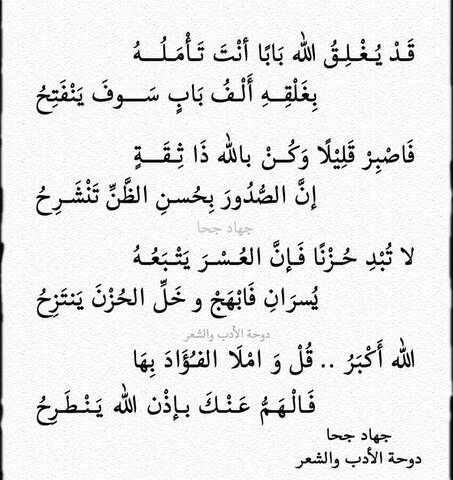 قَدْ يُغْلِقُ الله بَابًا أنْتَ تَأْمَلُهُ
بِغَلْقِهِ أَلْفُ بَابٍ سَوفَ يَنْفَتِحُ
فَاصْبِرْ قَلِيْلًا وَكُنْ بالله ذَا ثِقَةٍ
إنَّ الصُّدُورَ بِحُسنِ الظَّنِّ تَنْشَرِحُ
جهاد جحا
لا تُبْدِ حُزْنًا فَإنَّ العُسْرَ يَتْبَعُهُ
يُسرَانِ فَابْهَجْ و خَلِّ الحُزْنَ يَنتَزِحُ
دوحة الأدب والشعر
الله أَكْبَرُ .. قُلْ وَ امْلَا الفُؤَادَ بِهَا
فَالْهَمُّ عَنْكَ بإذْن الله يَنْطَرِحُ
جهاد جحا
دوحة الأدب والشعر